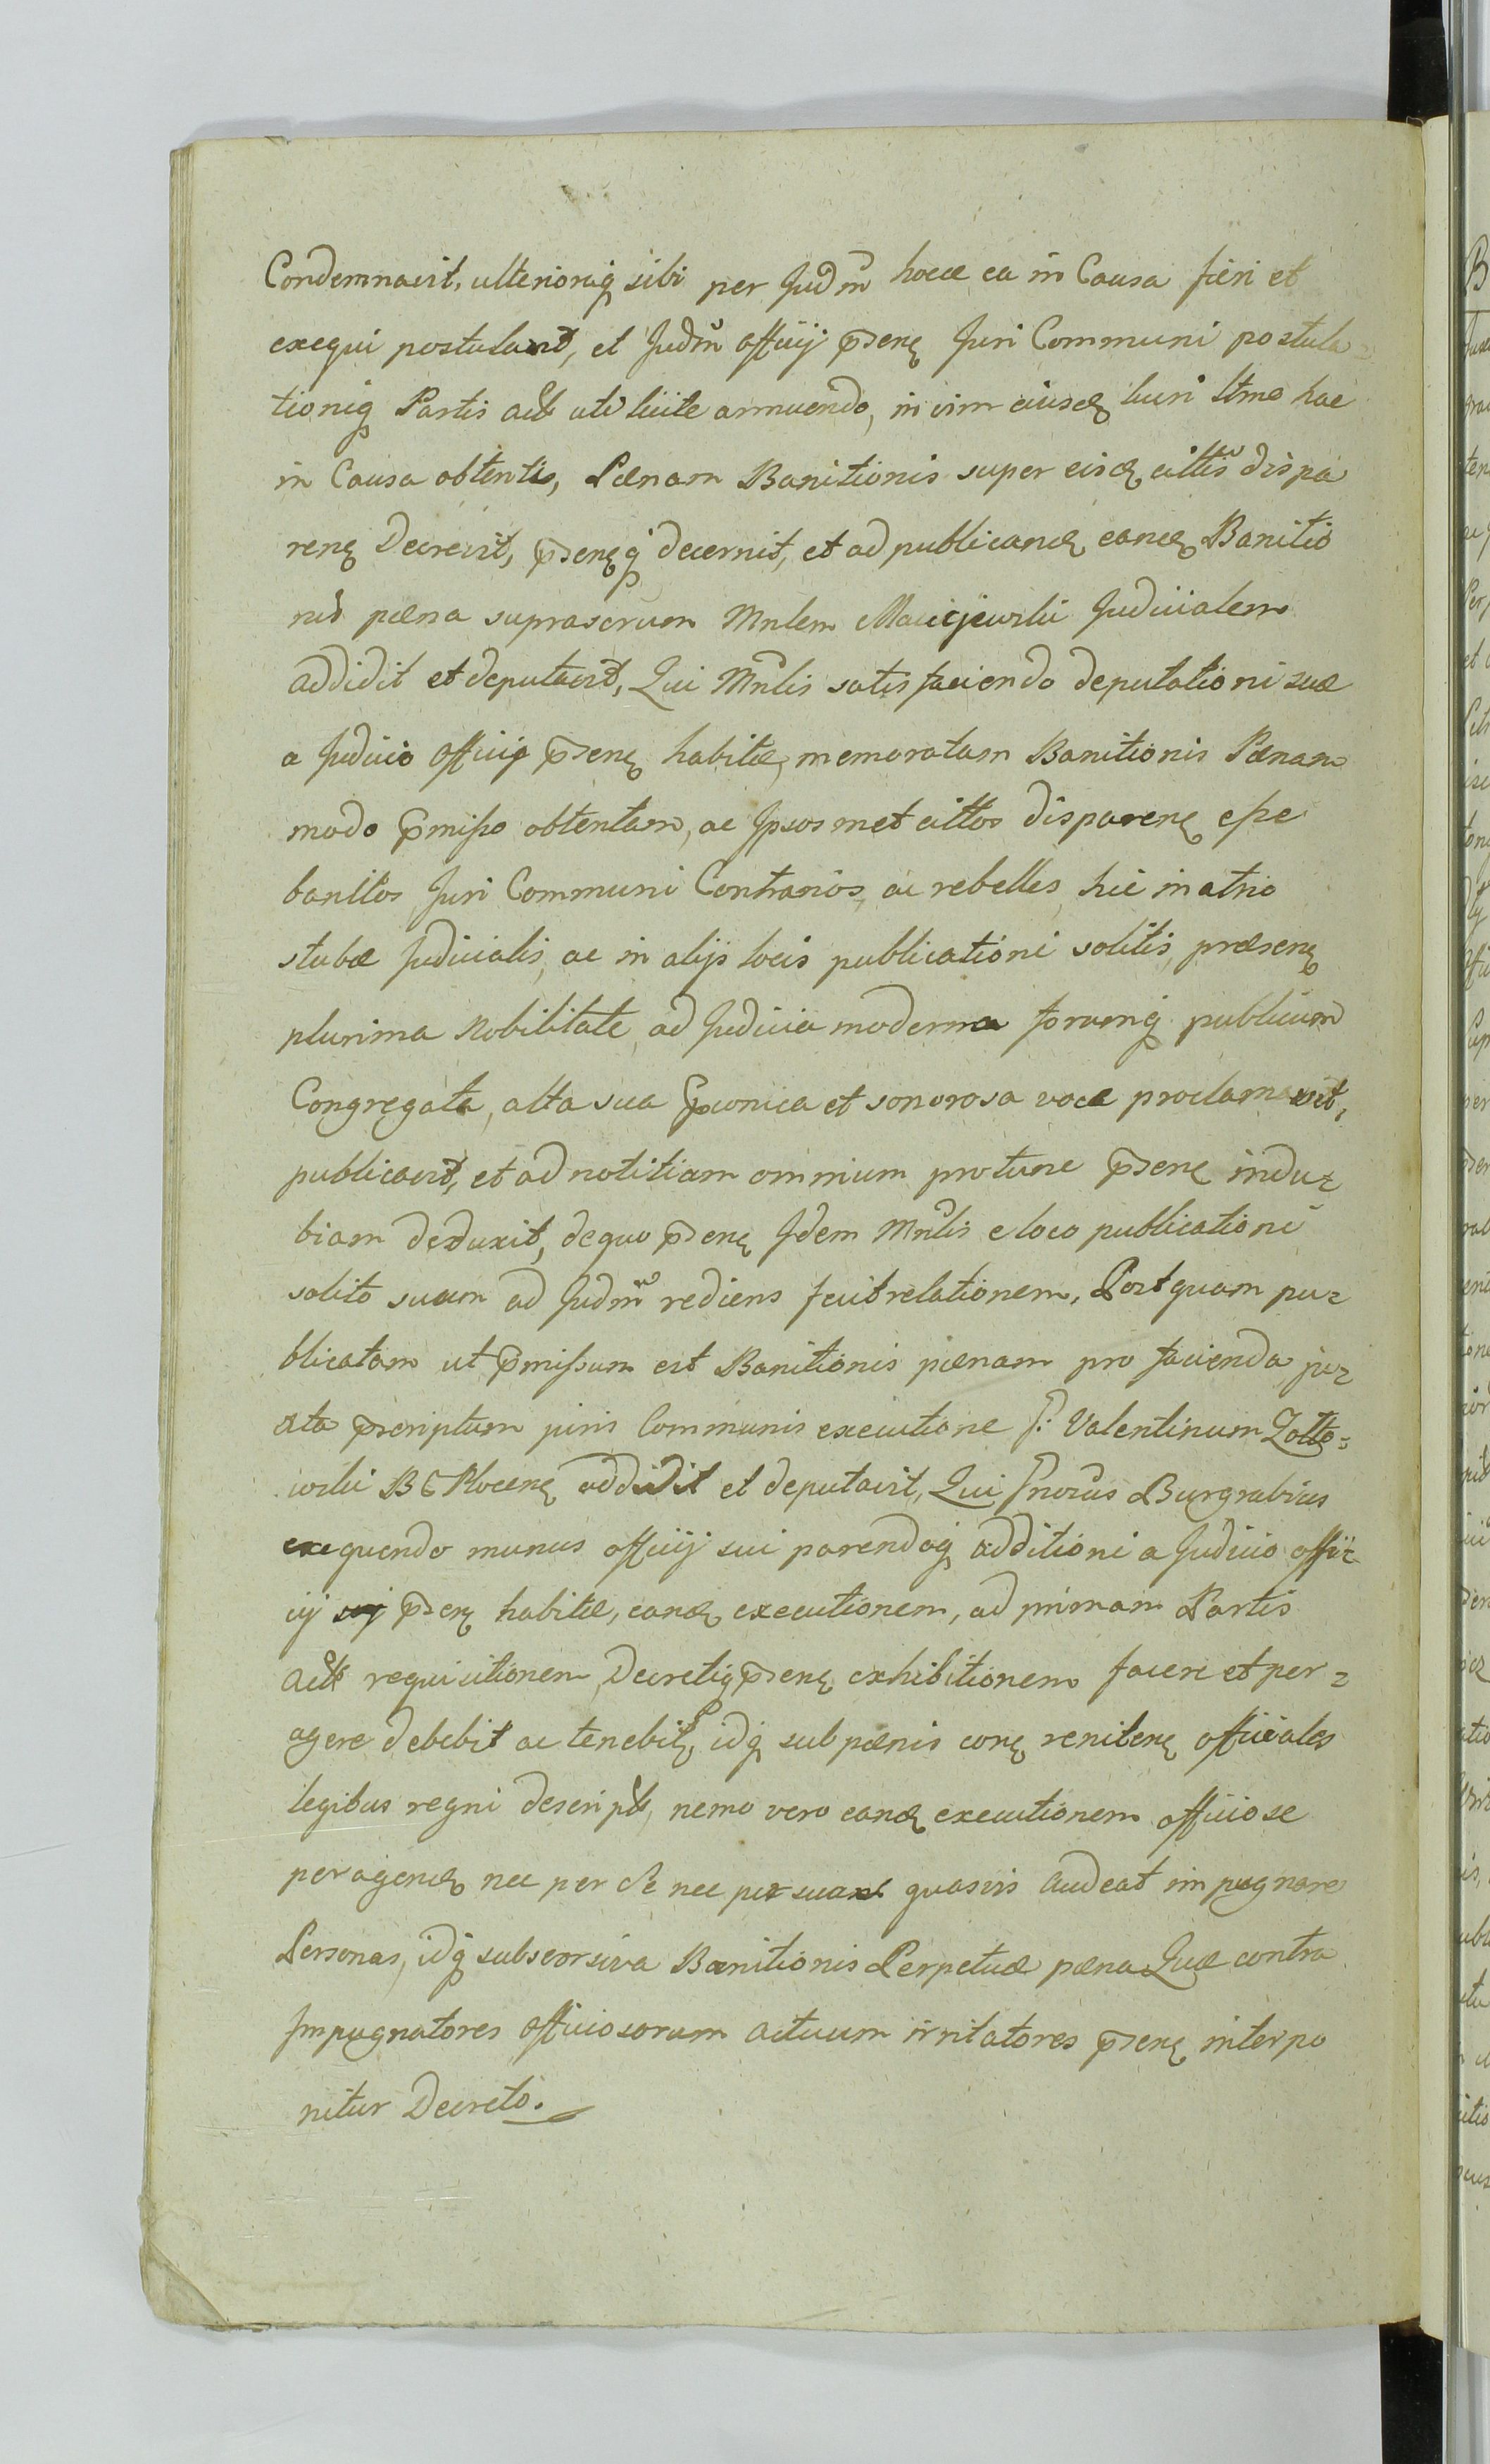 Condemnavit, ulteriorаq̨ sibi per Judm̃ hocce ea in Causa fieri et
exequi postulavit, et Judm̃ officij p̃senę Juri Communi postula
tioniq̨ Partis act̃ uti licite annuendo, in vim eiusdę lucri ltme hac
in Causa obtenti, Pænam Banitionis super eisdę cittis dispa
renę Decrevit, p̃senęq̨ decernit, et ad publicandę eandę Banitio
nis pæna suprascrum Mnlem Maciejewski Judicialem
addidit et deputavit, Qui Mnlis satisfaciendo deputationi suæ
a Judicio officij p̃senę habitæ, memoratam Banitionis Pænam
modo p̃misso obtentam, ac Ipsosmet cittos disparenę esse
banitos Juri Communi Contrarios, ac rebelles, hic in atrio
stubæ Judicialis, ac in alijs locis publicationi solitis, præsenę
plurima Nobilitate, ad Judicia moderna forumq̨ publicum
Congregata, alta sua p̃conica et sonorosa voce proclamavit,
publicavit, et ad notitiam omnium protunc p̃senę indu=
biam deduxit, de quo p̃senę Idem Mnlis e loco publicationi
solito suam ad Judm̃ rediens fecit relationem, Postquam pu=
blicatam ut p̃missum est Banitionis pænam pro facienda ju=
xta p̃scriptum juris Communis executione G: Valentinum Zołto=
wski BC Plocenę addidit et deputavit, Qui Gnosus Burgrabius
exequendo munus officij sui parendoq̨ additioni a Judicio offi=
cij p̃senę habitæ, eandę executionem, ad primam Partis
act̃ requisitionem Decretiq̨ p̃senę exhibitionem facere et per=
agere debebit ac tenebit̃, idq̨ sub pænis conę renitenę officiales
legibus regni descript̃, nemo vero eandę executionem officiose
peragendę nec per se nec per suas quasvis audeat impugnare
Personas, idq̨ sub seorsiva Banitionis Perpetuæ pæna Quæ contra
Impugnatores officiosorum actuum irritatores p̃senę interpo
nitur Decreto.